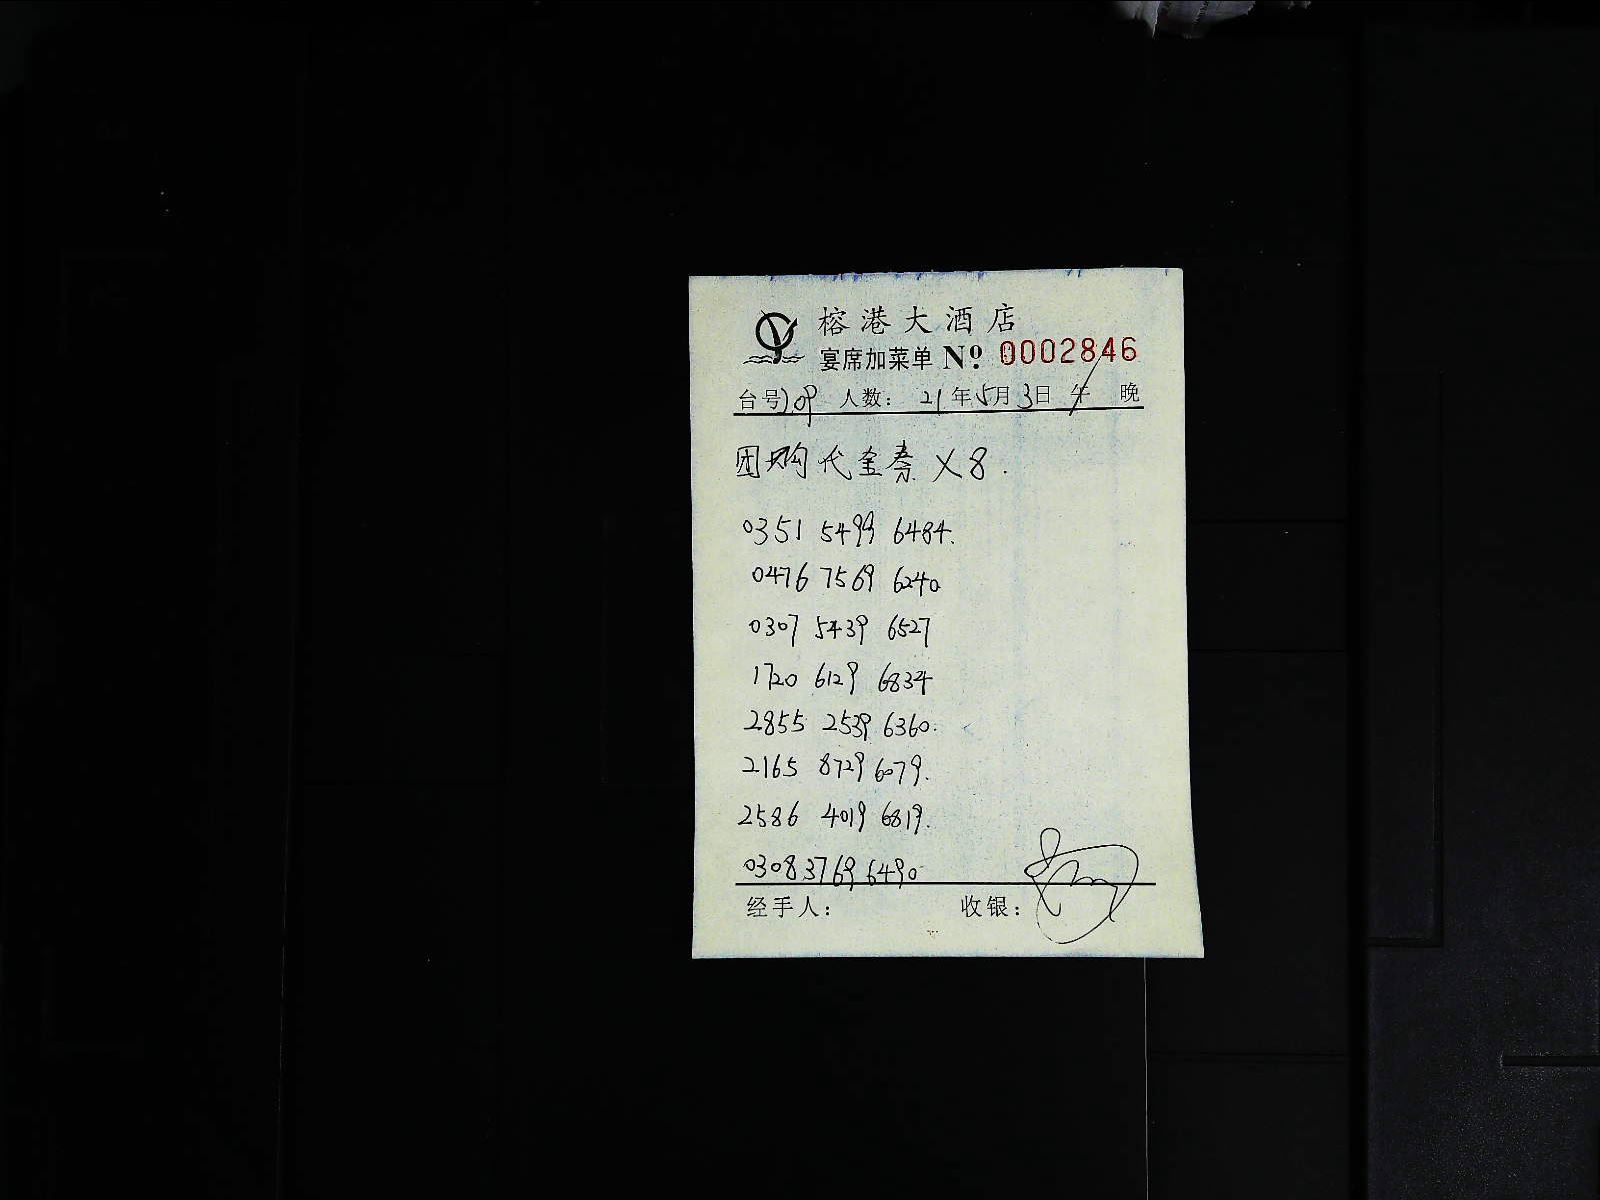 榕港大酒店
宴席加菜单 Nº. 0002846
台号209 人数： 21年5月3日 午 晚
团购代金券 X8.
0351 5499 6484.
0476 7569 6240
0307 5439 6527
1720 6129 6834
2855 2539 6360.
2165 8729 6079.
2586 4019 6819.
0308 3769 6490
经手人： 收银：